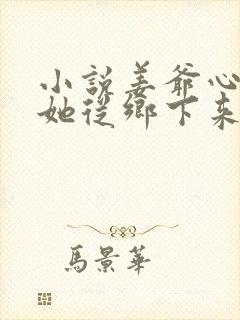 小說姜爺心
她從鄉下來
馬景華